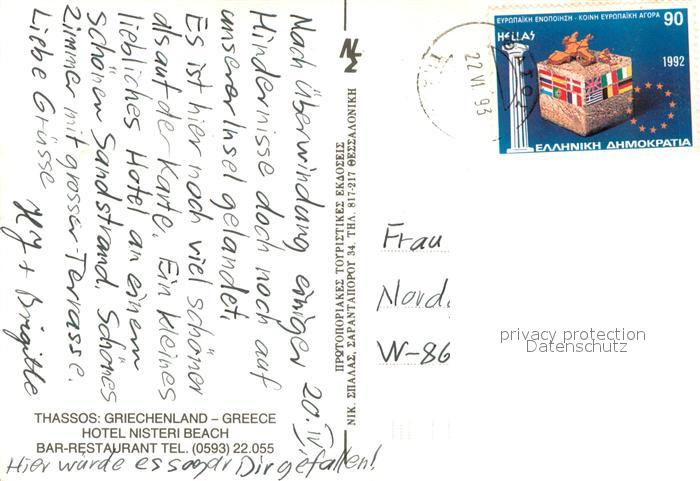 20. IV.
Nach Überwindung einiger
Hindernisse doch noch auf
unserer Insel gelandet.
Es ist hier noch viel schöner
als auf der Karte. Ein kleines
liebliches Hotel an einem
schönen Sandstrand. Schönes
Zimmer mit grosser Terrasse.
Liebe Grüsse
+ Brigitte
Hier würde es sogar Dir gefallen!
THASSOS: GRIECHENLAND – GREECE
HOTEL NISTERI BEACH
BAR-RESTAURANT TEL. (0593) 22.055
ΠΡΩΤΟΠΟΡΙΑΚΕΣ ΤΟΥΡΙΣΤΙΚΕΣ ΕΚΔΟΣΕΙΣ
ΝΙΚ. ΣΠΑΛΑΣ, ΣΑΡΑΝΤΑΠΟΡΟΥ 34, ΤΗΛ. 817-217 ΘΕΣΣΑΛΟΝΙΚΗ
ΕΥΡΩΠΑΪΚΗ ΕΝΟΠΟΙΗΣΗ - ΚΟΙΝΗ ΕΥΡΩΠΑΪΚΗ ΑΓΟΡΑ
90
HELLAS
1992
ΕΛΛΗΝΙΚΗ ΔΗΜΟΚΡΑΤΙΑ
22 VI 93
Frau
Nord.
W-86
privacy protection
Datenschutz